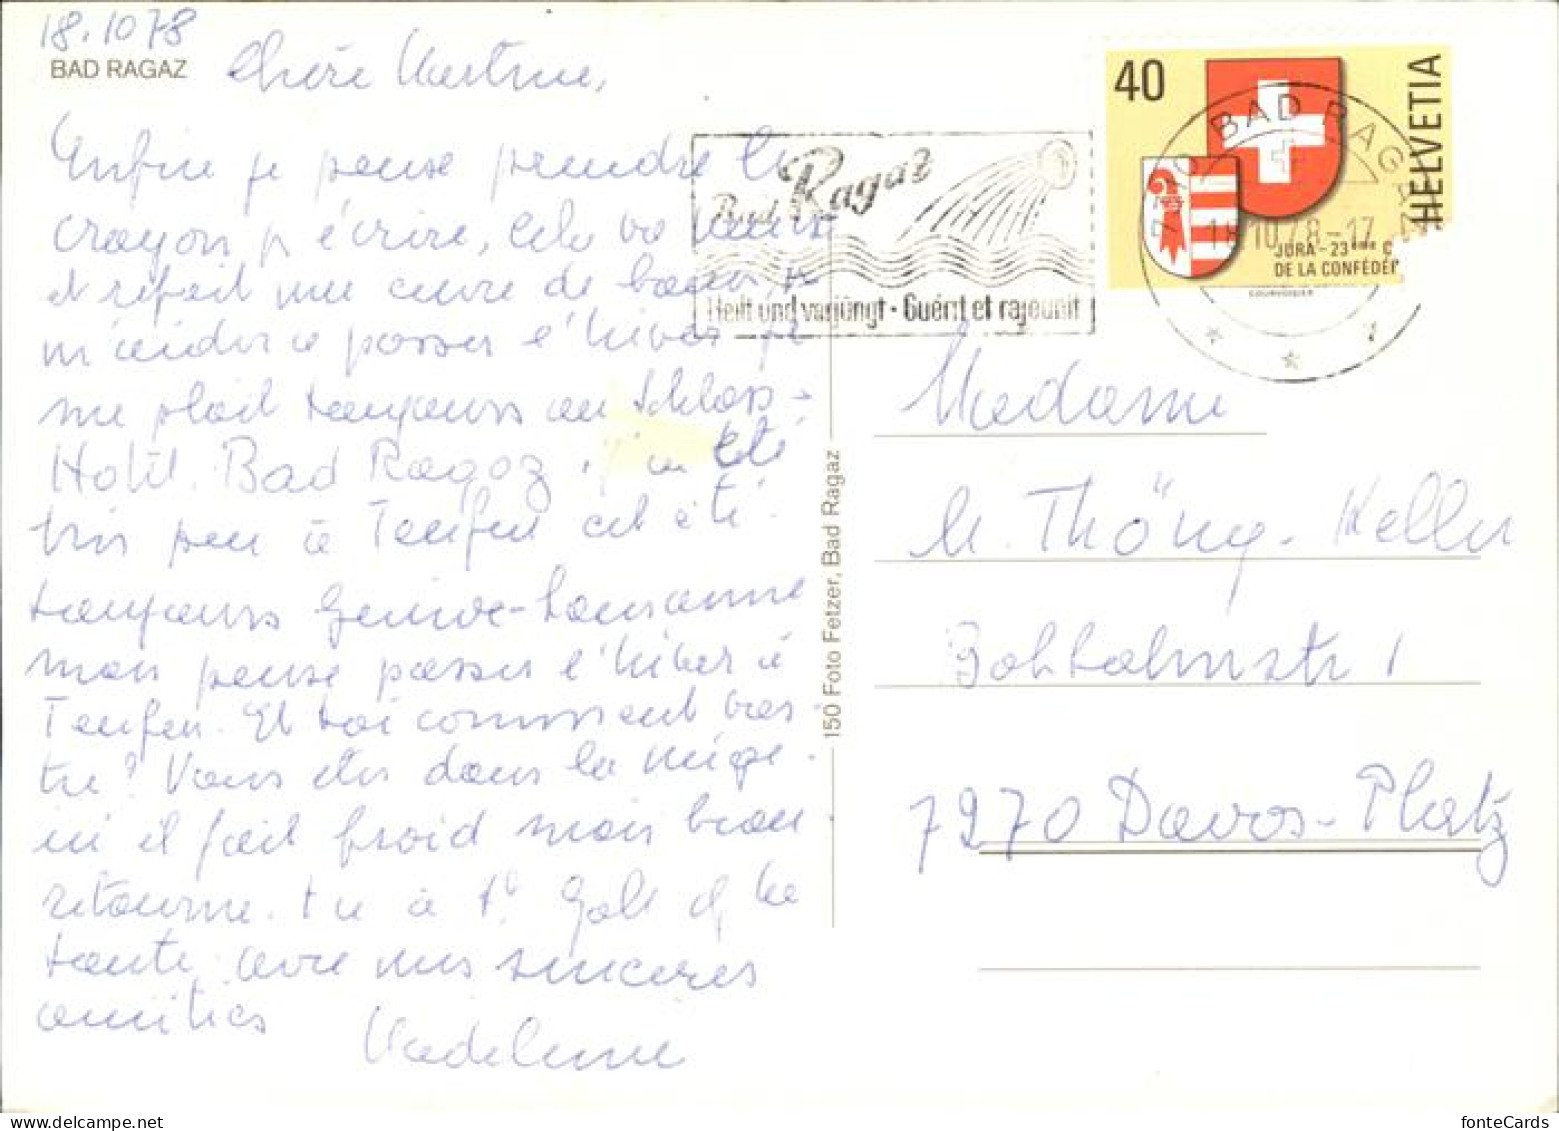 18.10.78
BAD RAGAZ
Chère Martine,
Enfin je pense prendre le
crayon p écrire, cela va mieux
et refait une cure de bains, p
m'aider à passer l'hiver je
me plait toujours au Schloss-
Hotel. Bad Ragaz. j'ai été
très peu à Teufen cet été.
toujours Genève-Lausanne
mais pense passer l'hiver à
Teufen. Et toi comment vas
tu? Vous êtes dans la neige.
ici il fait froid mais beau
retourne. tu à
toute avec mes sincères
amitiés
Madeleine
Bad Ragaz
Heilt und verjüngt · Guérit et rajeunit
40
HELVETIA
JURA - 23ème C
DE LA CONFÉDÉR
COURVOISIER
7310 BAD RAGAZ
18.10.78-17
150 Foto Fetzer, Bad Ragaz
Madame
M. Thöny-Keller
1
7270 Davos-Platz
fonteCards